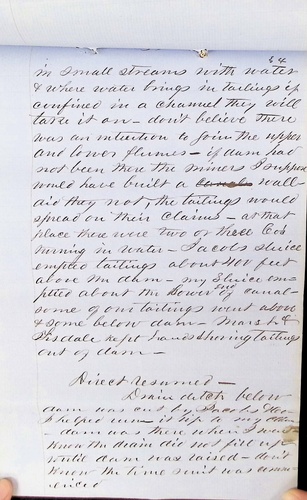 64
in small streams with water
& where water brings in tailings if
confined in a channel they will
take it on - don't believe there
was an intention to join the upper
and lower flumes - if dam had
not been there the miners I suppose
would have built a wall
did they not, the tailings would
spread on their claims - at that
place there were two or three Cos
turning in water - Jacobs sluice
emptied tailings about 400 feet
above the dam - my sluice em-
ptied about the lower end of canal -
some of our tailings went above
& some below dam - Marsh &
Tisdale kept hands shoving tailings
out of dam -
Direct resumed -
Drain ditch below
dam was cut by Jacobs
- dam was there when I went
know the drain did not fill up
until dam was raised - don't
know the time suit was comm-
enced